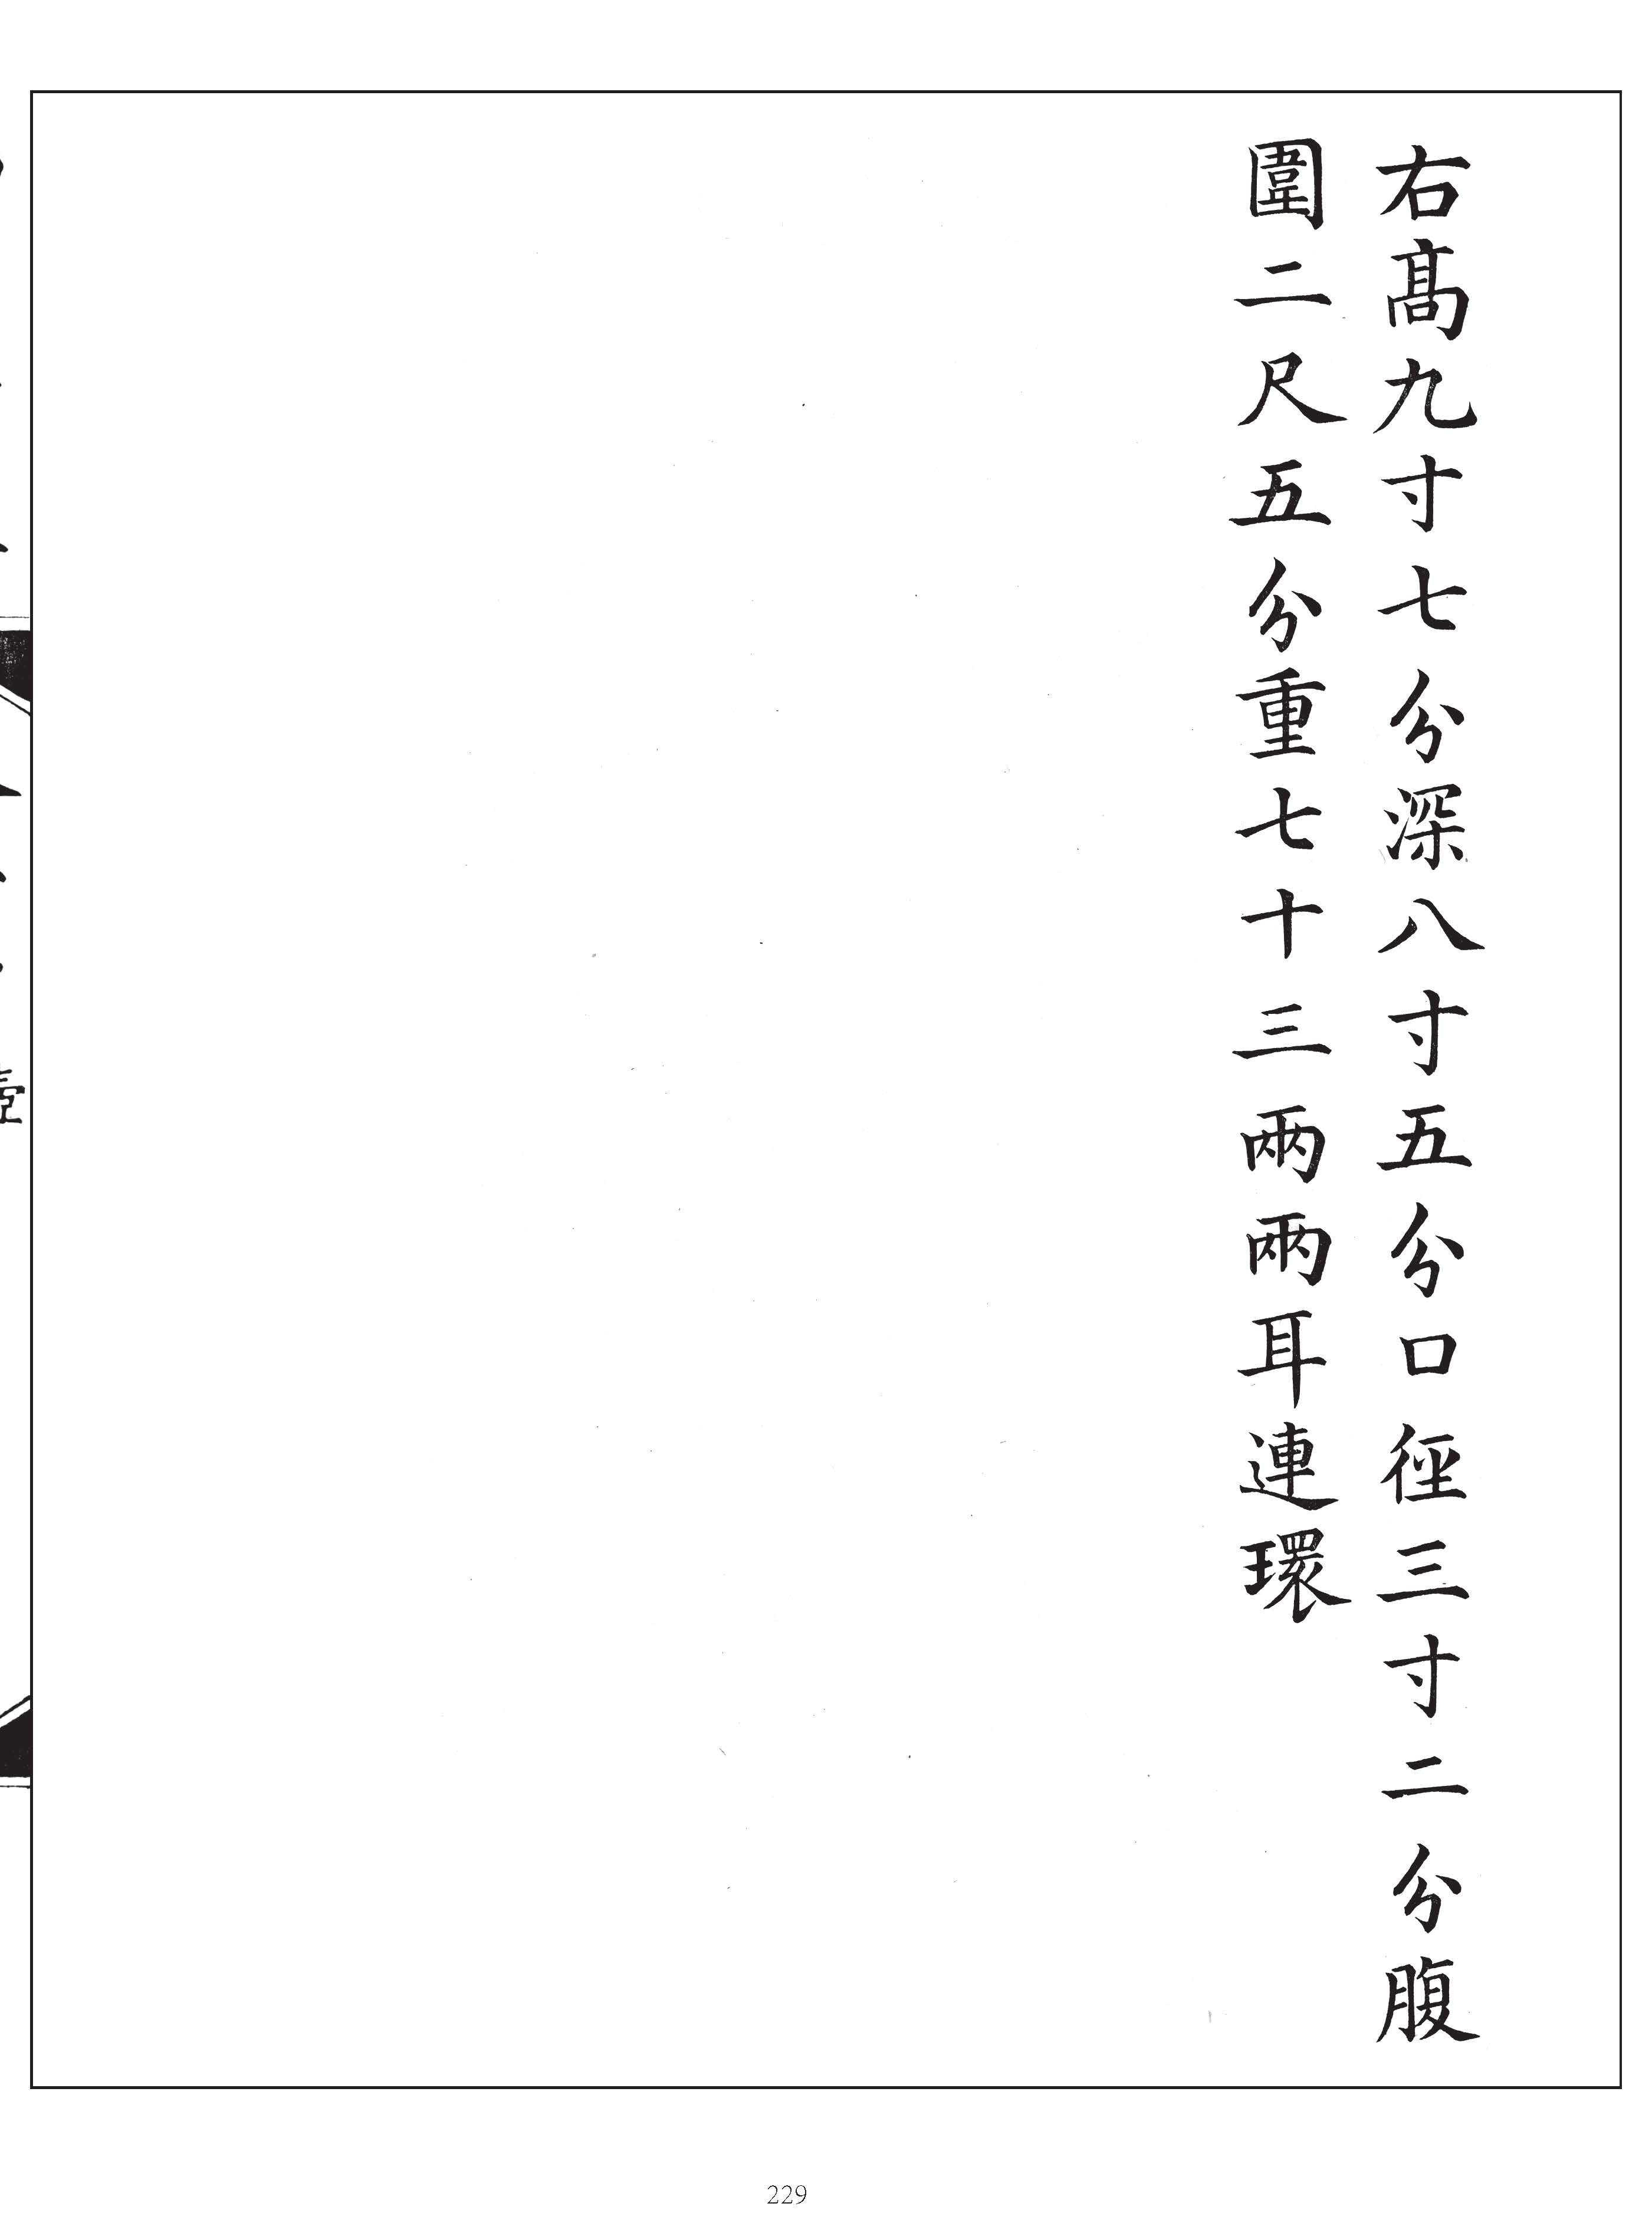 右髙九寸七分深八寸五分口徑三寸二分腹
圍二尺五分重七十三兩兩耳連環
229